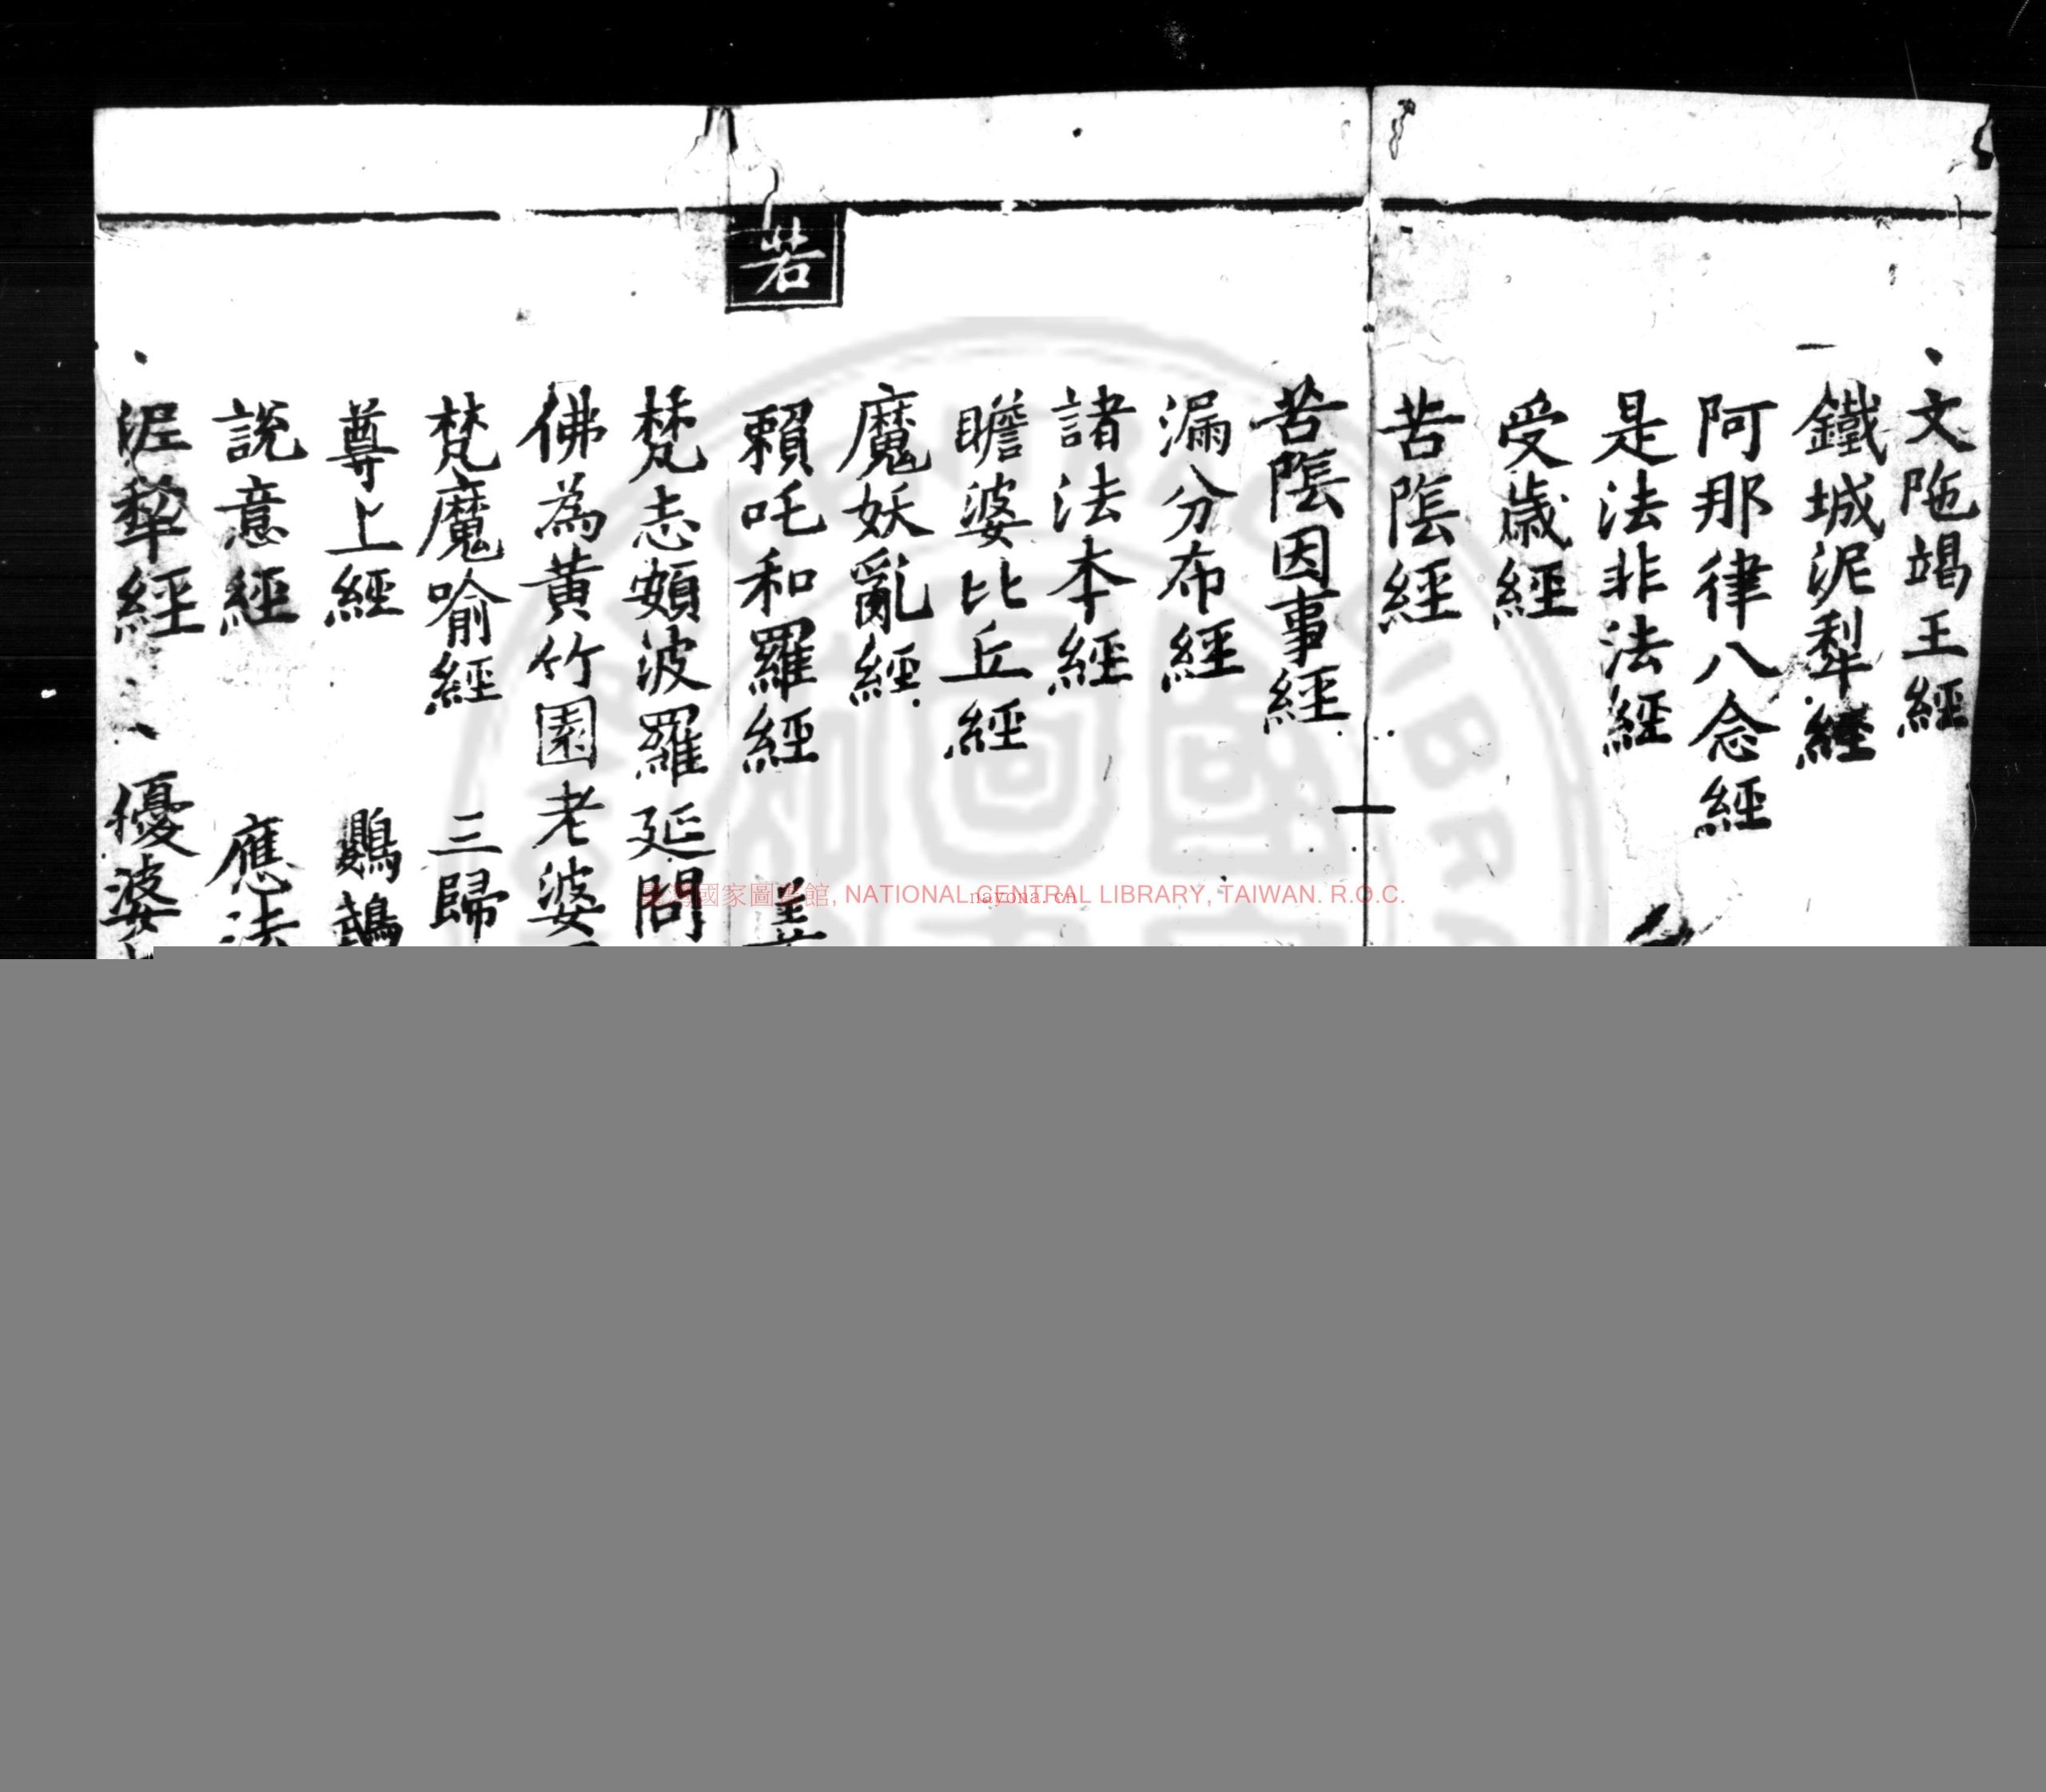 文陁竭王經
鐵城泥犁經
阿那律八念經
是法非法經
受歲經
苦隂經
苦隂因事經
漏分布經
諸法本經
瞻婆比丘經
魔妖亂經
賴吒和羅經
若
梵志頞波羅延問
佛為黃竹園老婆
梵魔喻經 三歸
尊上經 鸚鵡
說意經 應法
泥犂經 優婆
國家圖書館, NATIONAL CENTRAL LIBRARY, TAIWAN. R.O.C.
nayona.cn